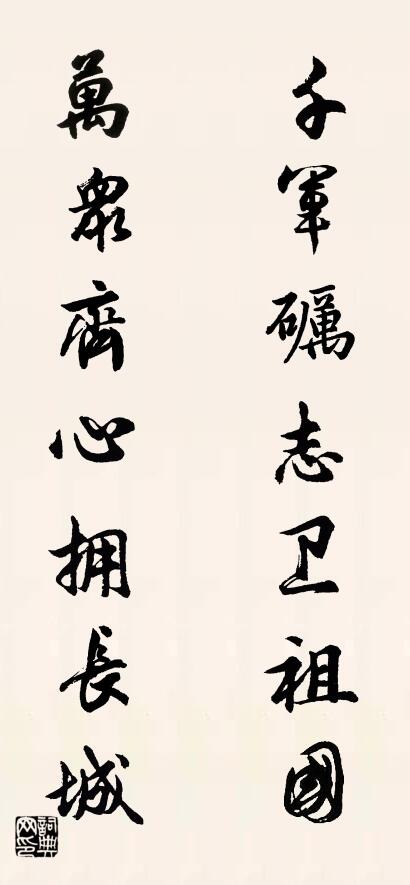 千軍礪志卫祖國
萬眾齊心拥長城
詞典网印